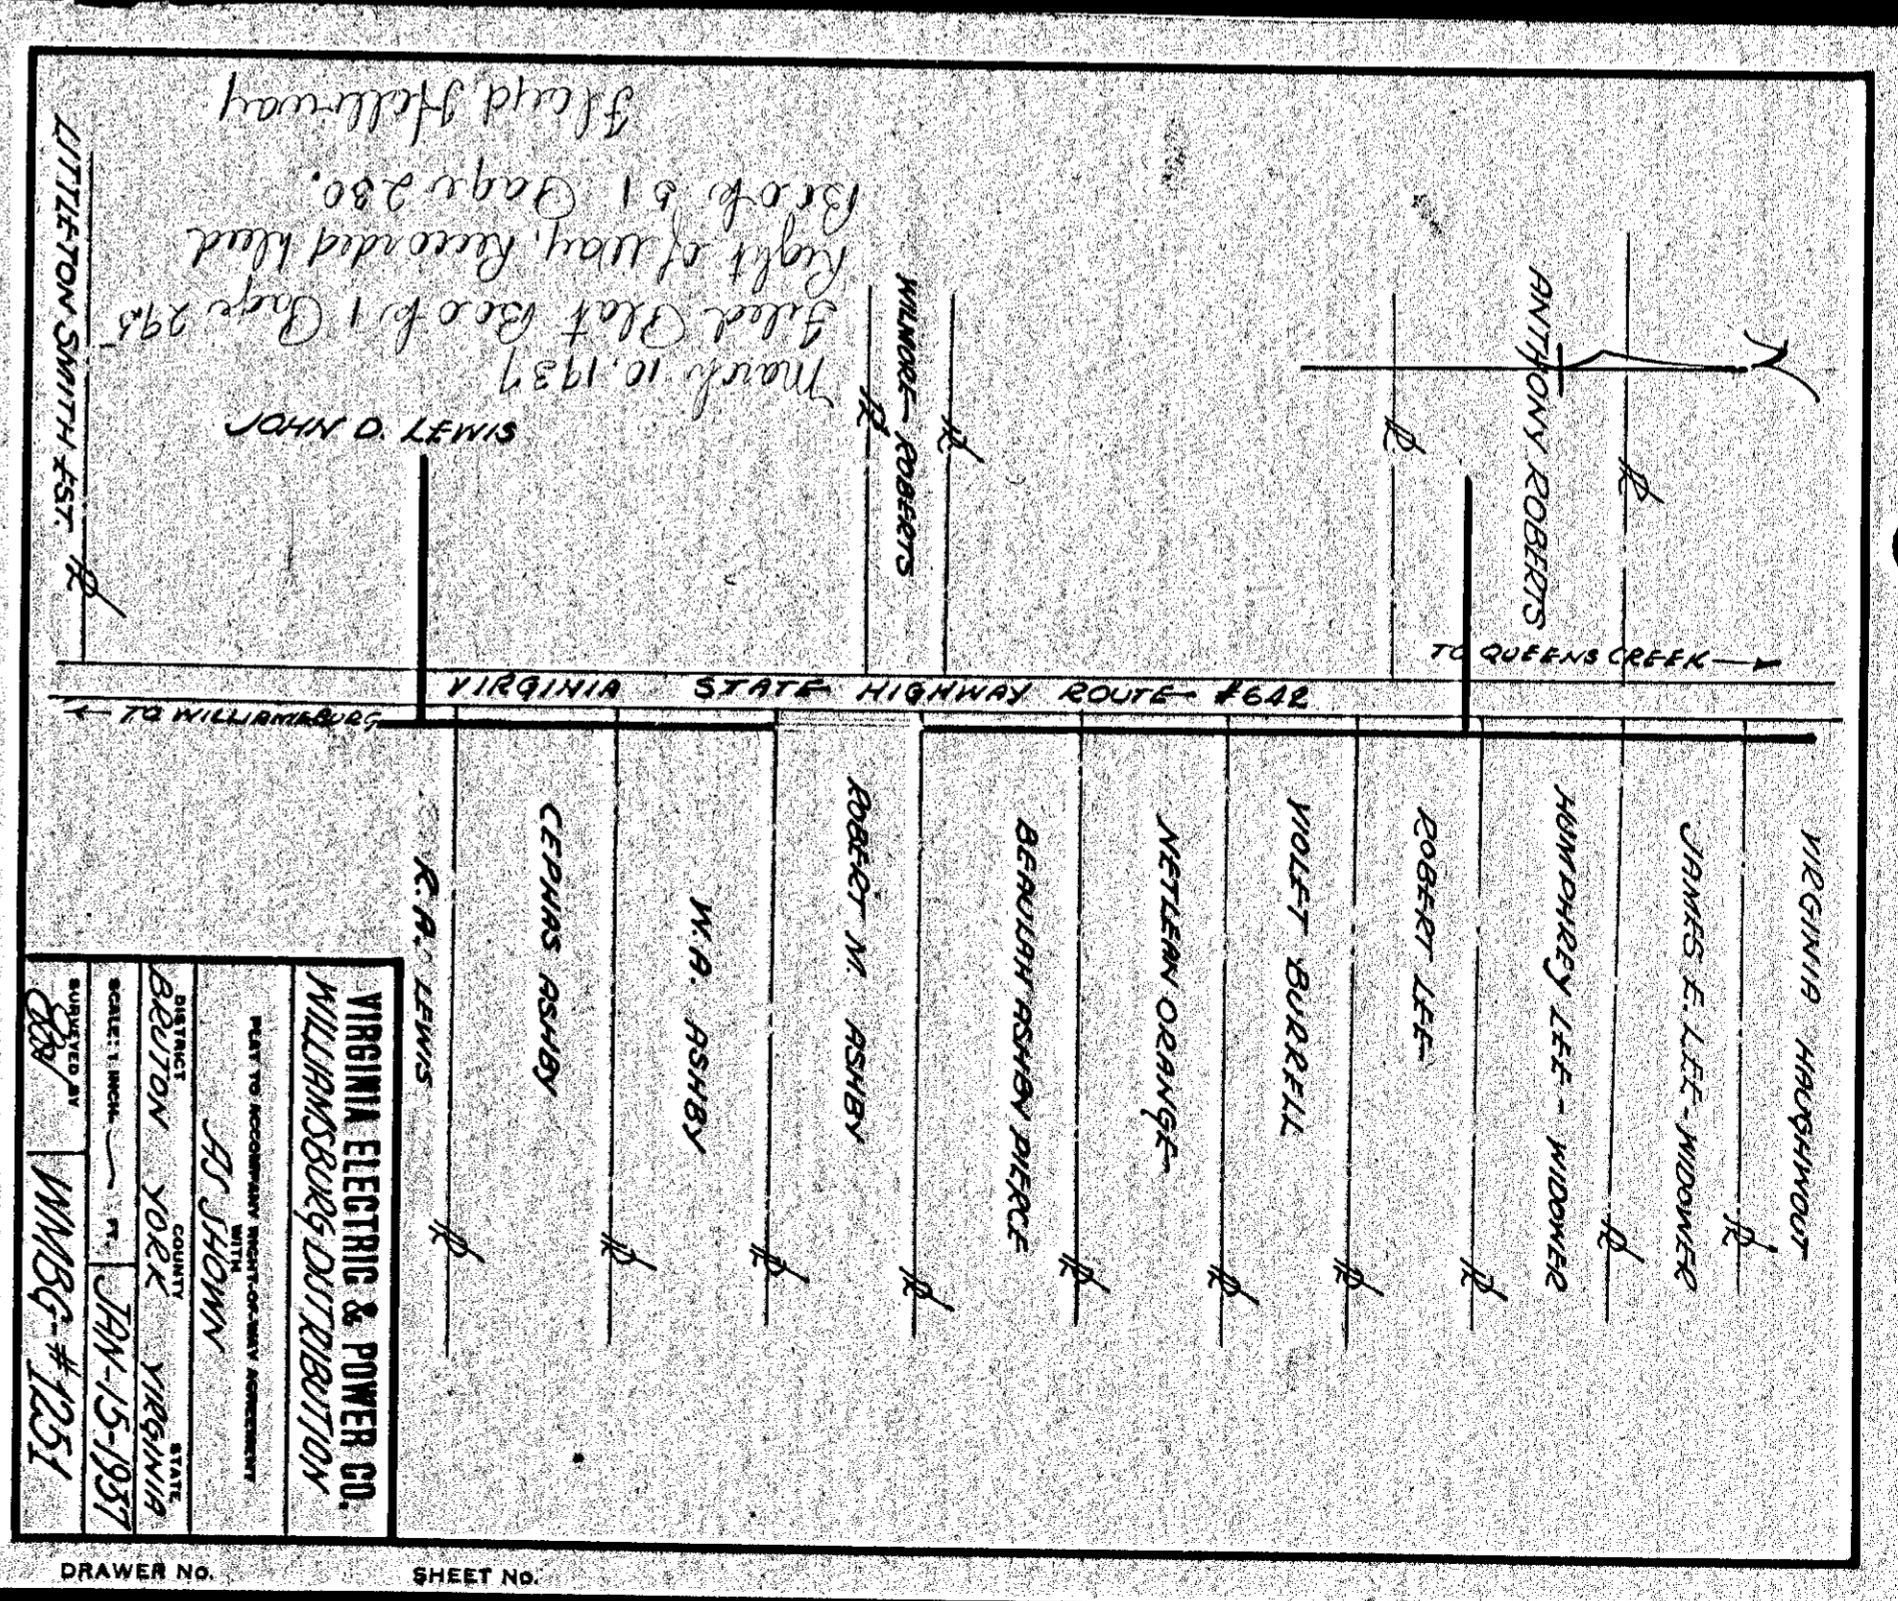 March 10, 1937
Filed Plat Book 1 Page 295
Right of Way, Recorded Deed
Book 51 Page 230.
Floyd Holloway
LITTLETON SMITH EST.
JOHN D. LEWIS
WILMORE ROBERTS
ANTHONY ROBERTS
TO QUEENS CREEK
VIRGINIA STATE HIGHWAY ROUTE #642
TO WILLIAMSBURG
R.A. LEWIS
CEPHAS ASHBY
W.A. ASHBY
ROBERT N. ASHBY
BEAULAH ASHBY PIERCE
NETLEAN ORANGE
VIOLET BURRELL
ROBERT LEE
HUMPHREY LEE - WIDOWER
JAMES E. LEE - WIDOWER
VIRGINIA HAUGHWOUT
VIRGINIA ELECTRIC & POWER CO.
WILLIAMSBURG DISTRIBUTION
PLAT TO ACCOMPANY RIGHT-OF-WAY AGREEMENT
WITH
AS SHOWN
DISTRICT COUNTY STATE
BRUTON YORK VIRGINIA
SCALE: 1 INCH FT. JAN-15-1937
SURVEYED BY
WMBG-#1251
DRAWER NO. SHEET NO.